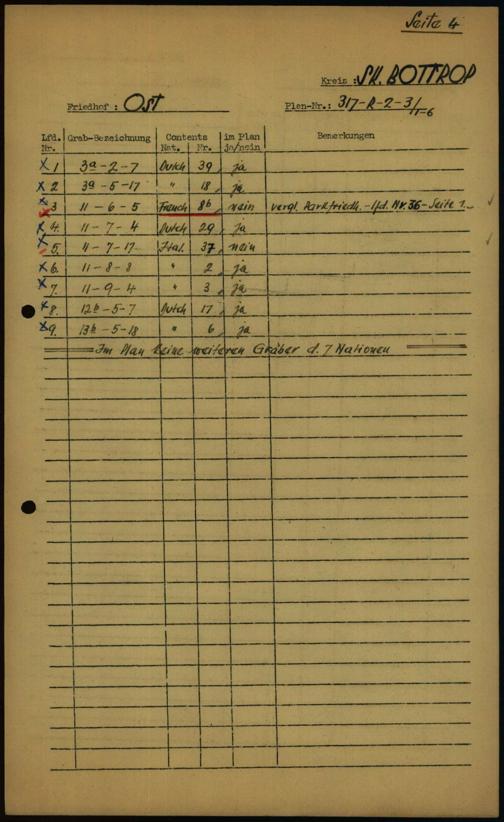 Seite 4
Kreis : SK. BOTTROP
Friedhof : Ost
Plan-Nr.: 317-R-2-3/11-6
Lfd. Nr. Grab-Bezeichnung Contents Nat. Nr. im Plan ja/nein Bemerkungen
x 1 3a-2-7 Dutch 39, ja
x 2 3a-5-17 " 18, ja
x 3 11-6-5 French 86, nein vergl. Parkfriedh.-lfd. Nr. 36-Seite 1.
x 4. 11-7-4 Dutch 29, ja
x 5. 11-7-17 Ital. 37, nein
x 6. 11-8-8 " 2, ja
x 7. 11-9-4 " 3, ja
x 8. 12b-5-7 Dutch 17, ja
x 9. 13b-5-18 " 6, ja
Im Plan keine weiteren Gräber d. 7 Nationen